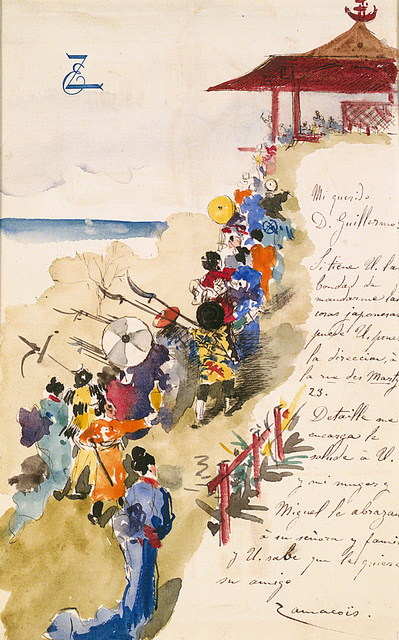 Mi querido
D. Guillermo:
Si tiene U. la
bondad de
mandarme las
cosas japonesas
puede U. poner
la direccion, à
la rue des Marty
23.
Detaille me
encarga le
salude à U.
y mi muger y
Miguel le abrazan
à su señora y famil
y U. sabe que le quiere
su amigo
Zamacoïs.